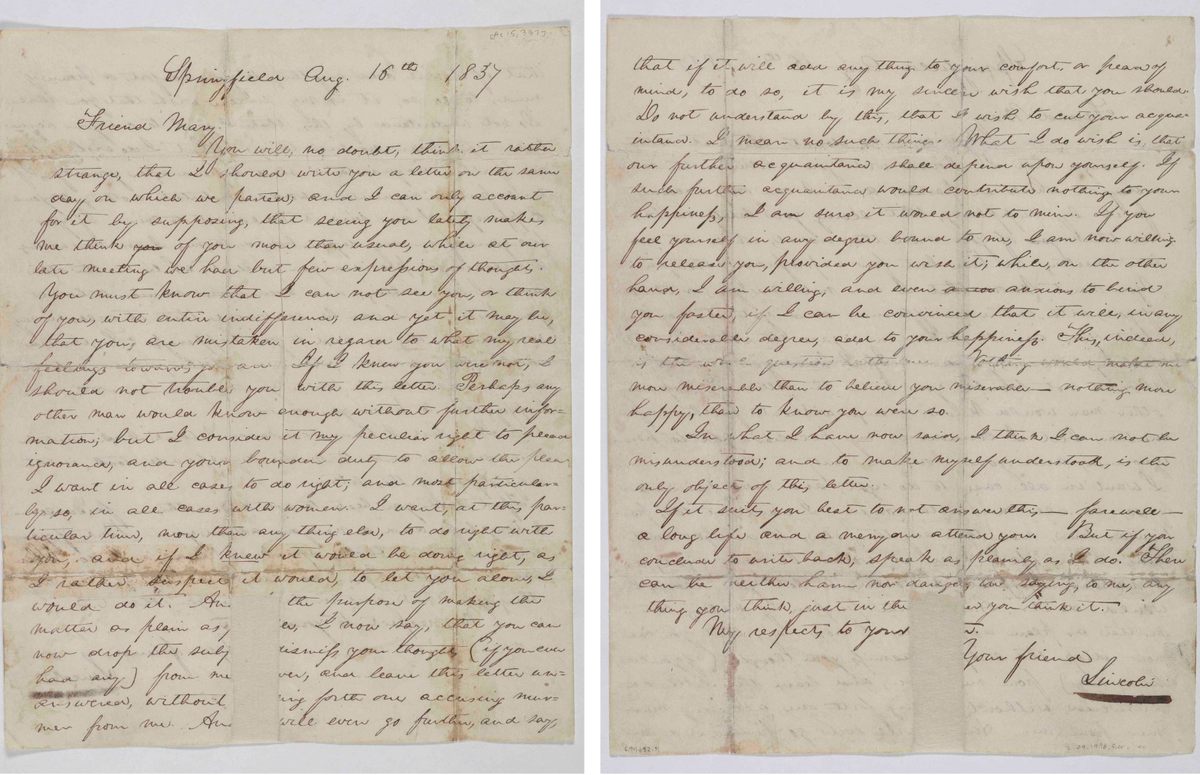 Springfield Aug. 16th 1837
Friend Mary.
You will, no doubt, think it rather
strange, that I should write you a letter on the same
day on which we parted; and I can only account
for it by supposing, that seeing you lately makes
me think you of you more than usual, while at our
late meeting we had but few expressions of thoughts.
You must know that I can not see you, or think
of you, with entire indifference; and yet it may be,
that you, are mistaken in regard to what my real
feelings towards you are. If I knew you were not, I
should not trouble you with this letter. Perhaps any
other man would know enough without further infor-
mation; but I consider it my peculiar right to plead
ignorance, and your bounden duty to allow the plea.
I want in all cases to do right; and most particular-
ly so, in all cases with women. I want, at this par-
ticular time, more than any thing else, to do right with
you, and if I knew it would be doing right, as
I rather suspect it would, to let you alone, I
would do it. And the purpose of making the
matter as plain as, I now say, that you can
now drop the subj ismiss your thoughts (if you ever
had any) from me ver, and leave this letter un-
answered, without ing forth one accusing mur-
mer from me. And will even go further, and say,
that if it will add any thing to your comfort, or peace of
mind, to do so, it is my sincere wish that you should.
Do not understand by this, that I wish to cut your acqua-
intance. I mean no such thing. What I do wish is, that
our further acquaintance shall depend upon yourself. If
such further acquaintance would contribute nothing to your
happiness, I am sure it would not to mine. If you
feel yourself in any degree bound to me, I am now willing
to release you, provided you wish it; while, on the other
hand, I am willing, and even anxious to bind
you faster, if I can be convinced that it will, in any
considerable degree, add to your happiness. This, indeed,
is the whole question with me. Nothing would make me
more miserable than to believe you miserable— nothing more
happy, than to know you were so.
In what I have now said, I think I can not be
misunderstood; and to make myself understood, is the
only object of this letter.
If it suits you best to not answer this— farewell—
a long life and a merry one attend you. But if you
conclude to write back, speak as plainly as I do. There
can be neither harm nor danger, in saying, to me, any
thing you think, just in the er you think it.
My respects to your r.
Your friend
Lincoln